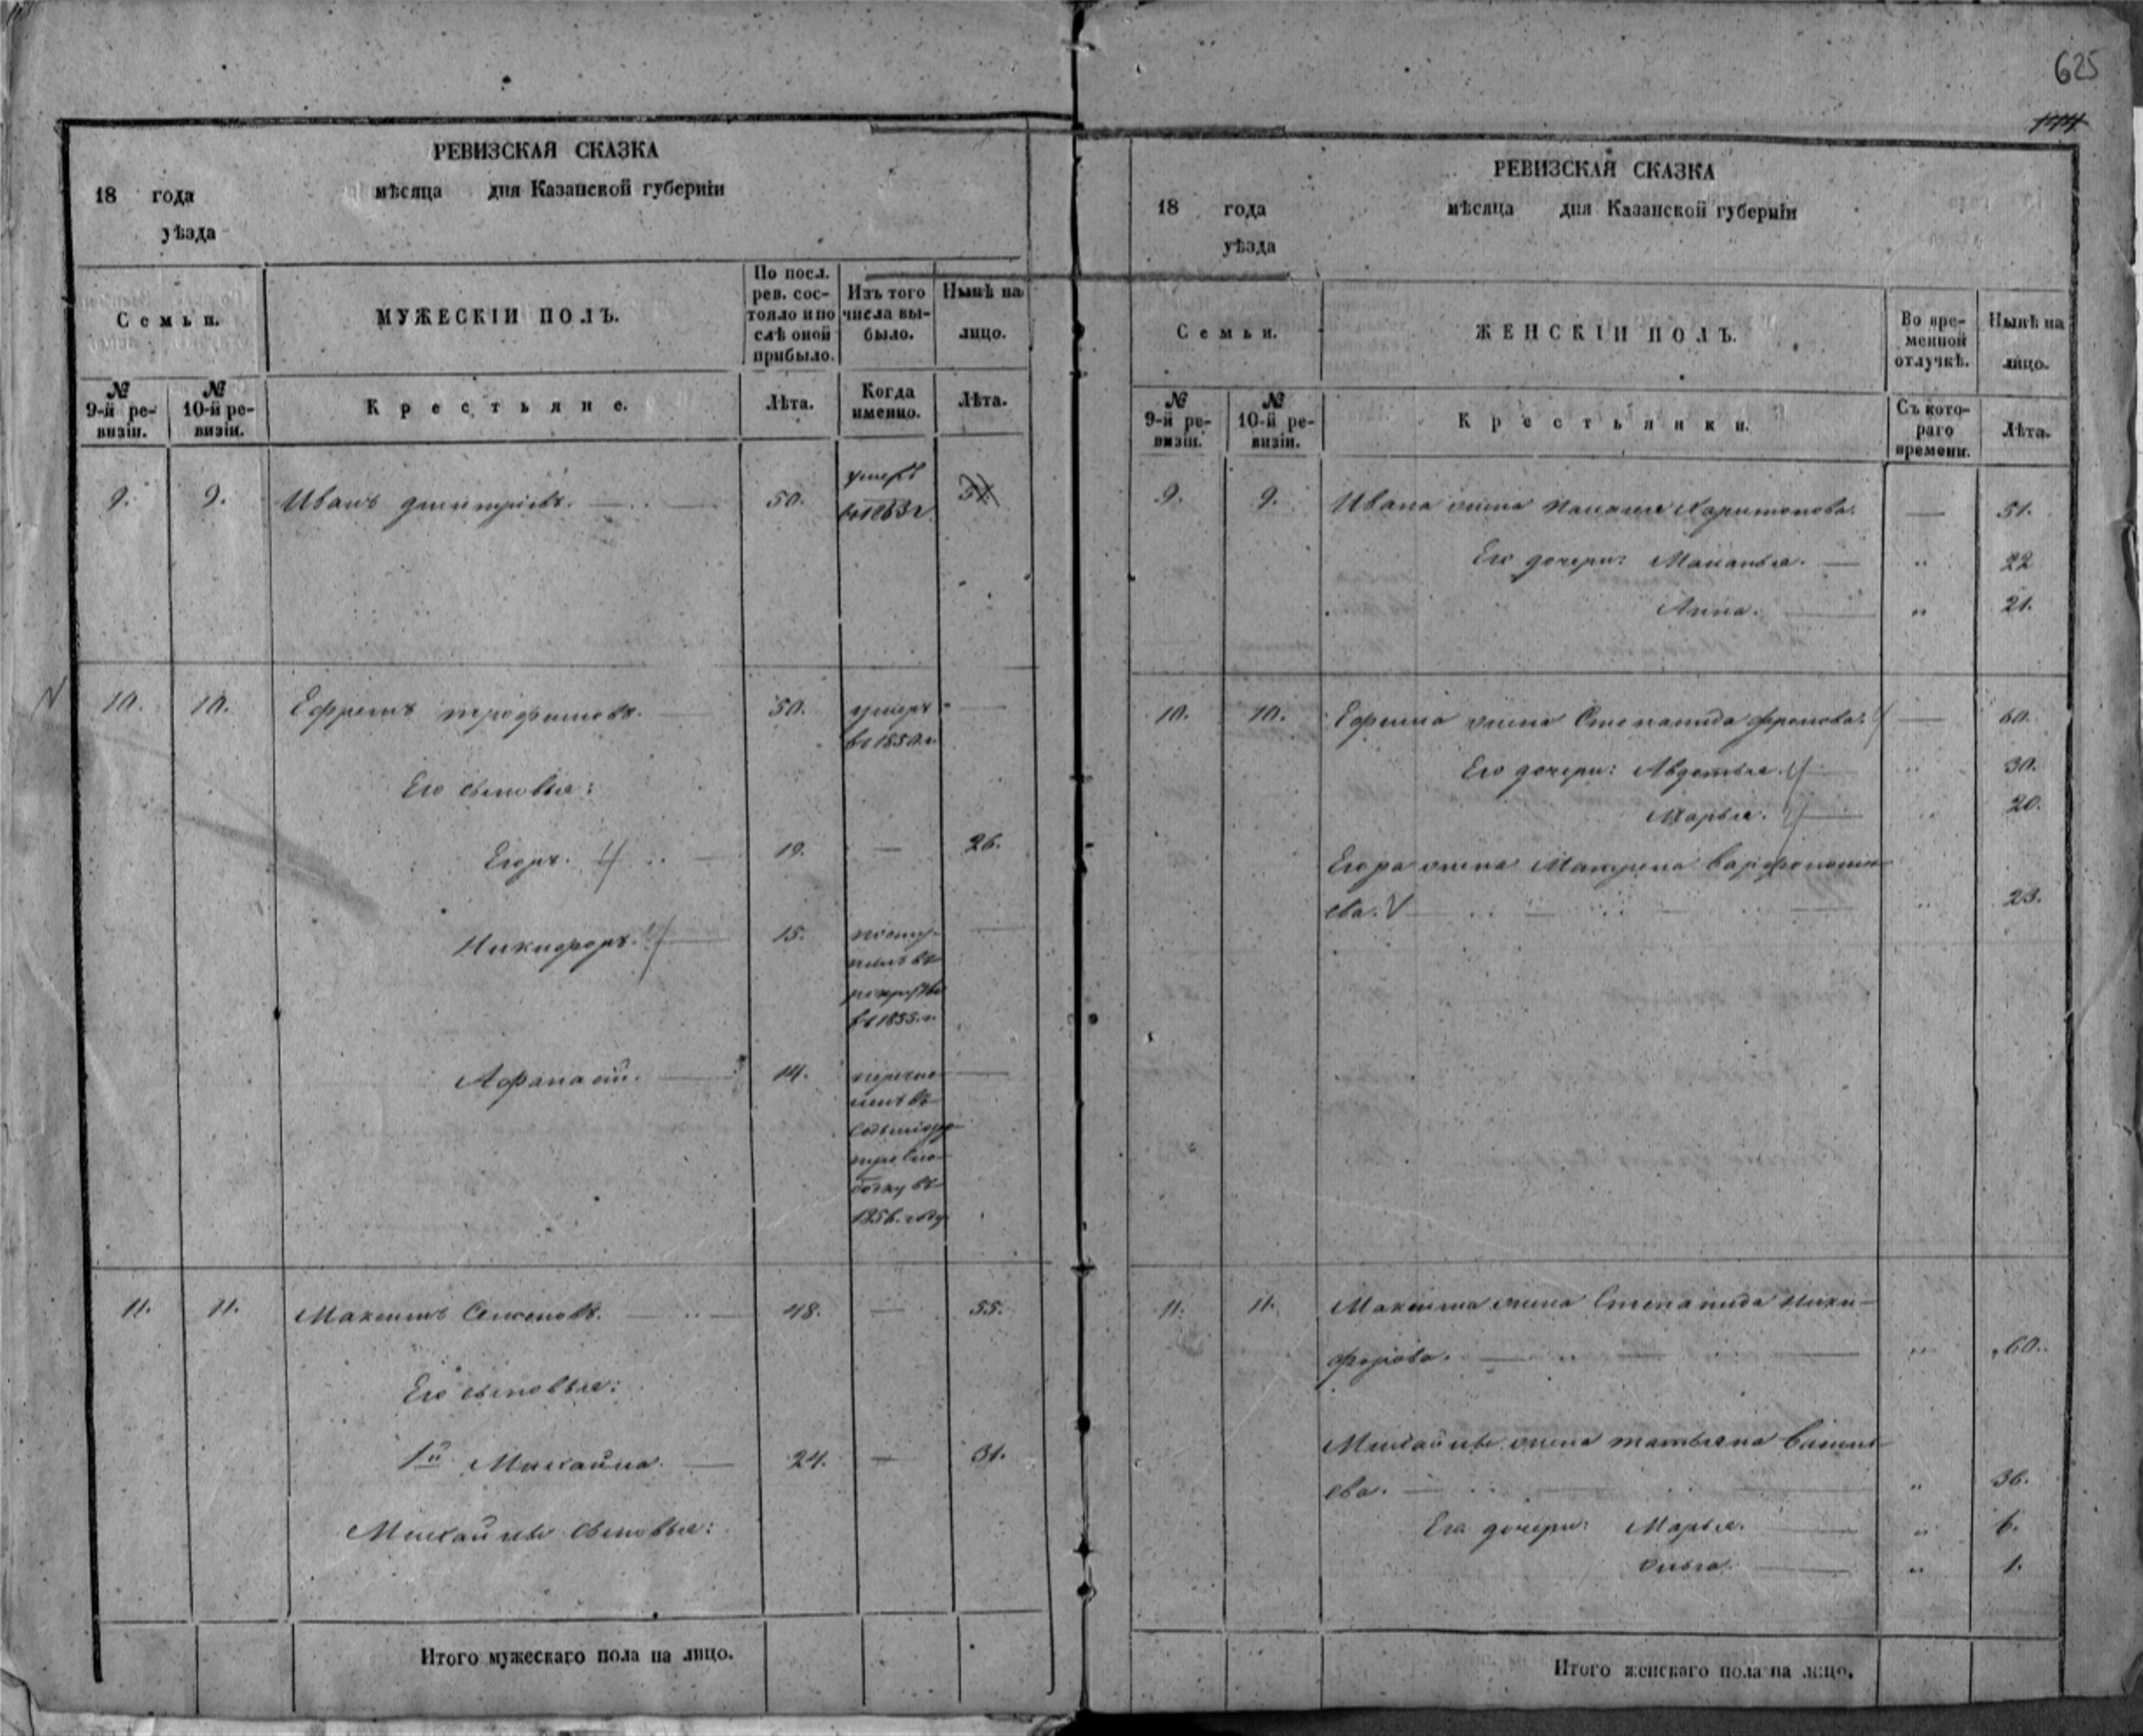 625
РЕВИЗСКАЯ СКАЗКА
18 года мѣсяца дня Казанской губерніи
уѣзда
Семьи.
МУЖЕСКІЙ ПОЛЪ.
По посл. рев. состояло и послѣ оной прибыло.
Изъ того числа выбыло.
Нынѣ на лицо.
№ 9-й ревизіи.
№ 10-й ревизіи.
Крестьяне.
Лѣта.
Когда именно.
Лѣта.
9. 9. Иванъ Дмитріевъ. 50. умеръ
10. 10. Ефремъ Трофимовъ. 50. умеръ
въ 1850.г.
Его сыновья:
Егоръ. 19. — 26.
Никифоръ. 15. посту-
пилъ въ
рекруты
въ 1855.г.
Афанасій. 14.
1856. году
11. 11. Максимъ Семеновъ. 48. — 55.
Его сыновья:
1й Михайла. 24. — 31.
Михайлы сыновья:
Итого мужескаго пола на лицо.
РЕВИЗСКАЯ СКАЗКА
18 года мѣсяца дня Казанской губерніи
уѣзда
Семьи.
ЖЕНСКІЙ ПОЛЪ.
Во временной отлучкѣ.
Нынѣ на лицо.
№ 9-й ревизіи.
№ 10-й ревизіи.
Крестьянки.
Съ котораго времени.
Лѣта.
9. 9. Ивана жена Харитонова. — 51.
Его дочери: Маланья. — „ 22
Анна. „ 21.
10. 10. Ефима жена Степанида Фролова. — 60.
Его дочери: Авдотья. „ 30.
Марья. „ 20.
Егора жена Матрена Варфоломѣ-
ева. „ 23.
11. 11. Максима жена Степанида Ники-
форова. „ 60.
Михайлы жена Татьяна Василь-
ева. „ 36.
Его дочери: Марья. „ 6.
Ольга. „ 1.
Итого женскаго пола на лицо.